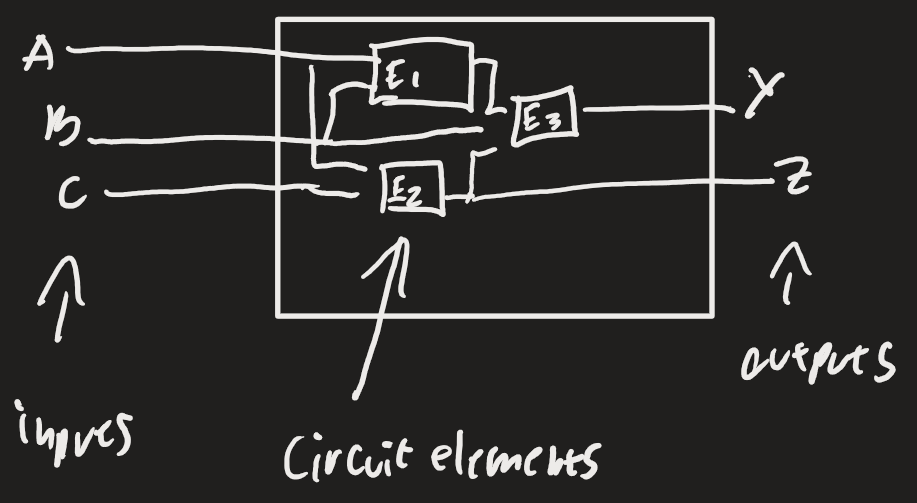 A
E1
B
E3
Y
C
E2
Z
inputs
Circuit elements
outputs